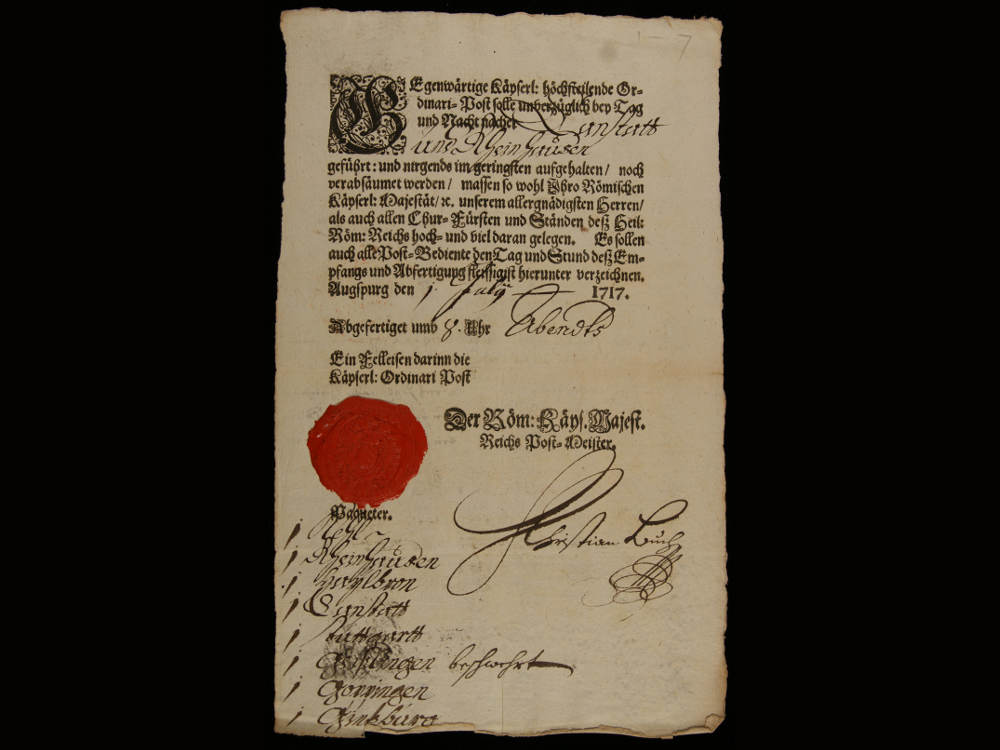 1 – 7
GEgenwärtige Käyserl: höchsteilende Or-
dinari-Post solle unverzüglich bey Tag
und Nacht nacher Canstatt
und Rheinhausen
geführt: und nirgends im geringsten aufgehalten/ noch
verabsäumet werden/ massen so wohl Ihro Römischen
Käyserl: Majestät/ ꝛc. unserem allergnädigsten Herren/
als auch allen Chur-Fürsten und Ständen deß Heil:
Röm: Reichs hoch- und viel daran gelegen. Es sollen
auch alle Post-Bediente den Tag und Stund deß Em-
pfangs und Abfertigung fleissigist hierunter verzeichnen.
Augspurg den 1 July 1717.
Abgefertiget umb 8. Uhr Abendts
Ein Felleisen darinn die
Käyserl: Ordinari Post
Der Röm: Käys. Majest.
Reichs Post-Meister.
Christian Buch
Paqueter.
1 Kehl
1 Rheinhausen
1 Heylbron
1 Canstatt
1 Stuttgartt
1 Geislingen beschwehrt
1 Göppingen
1 Günkburg